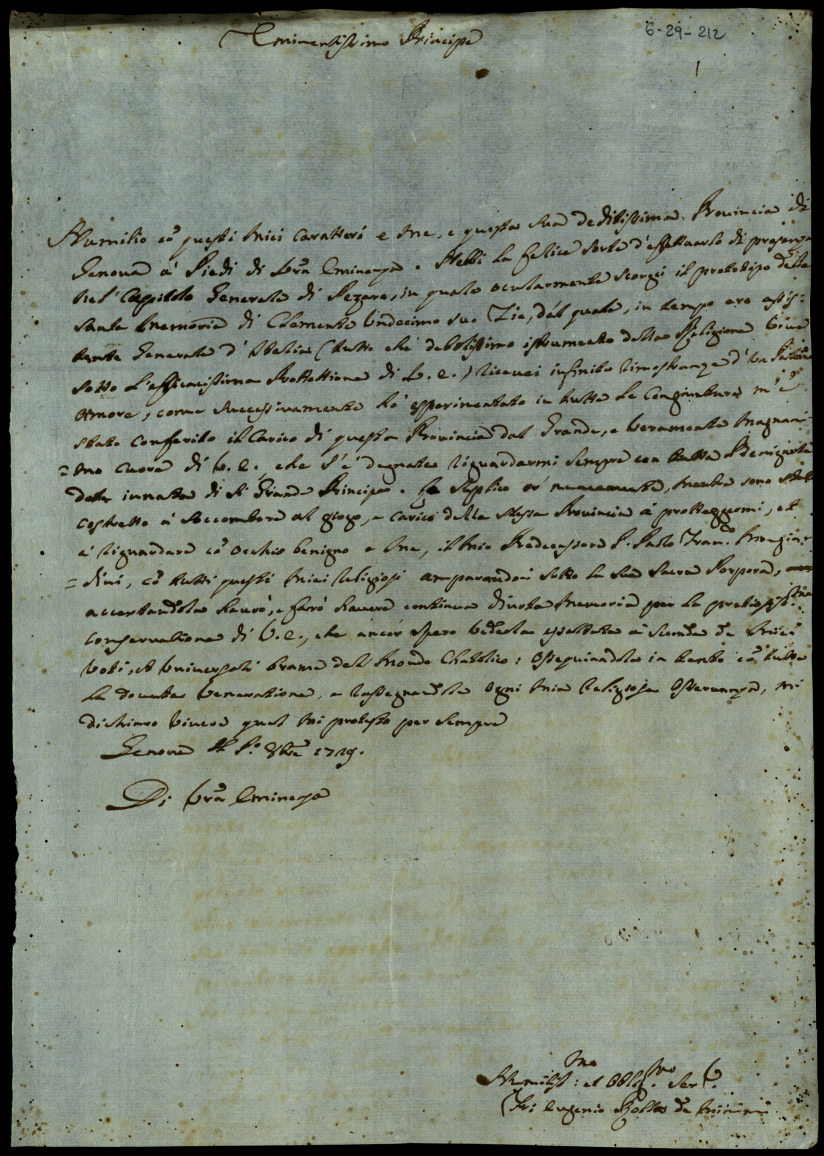 6-29-212
1
Eminentissimo Principe
Humilio cõ questi miei caratteri e me, e questa sua deditissima Provincia di
Genova a' Piedi di Vrã Eminenza. Hebbi la felice sorte d'effettuarlo di presenza
nel Cappitolo Generale di Pezaro, in quale ocularmente scorgei il prototipo della
santa memoria di Clemente Undecimo suo Zio, dal quale, in tempo ero assis-
tente Generale d'Italia (tutto che debolissimo istrumento della Religione
sotto l'efficacissima Prottettione di V. E.) ricevei infinite rimostranze d'un
Amore, come successivamente hò esperimentato in tutte le congiunture m'è
stato conferito il carico di questa Provincia dal Grande, e veramente magnani-
=mo cuore di V. E. che s'è degnato riguardarmi sempre con tutta Benignità
dote innata di sì Grande Principe. La suplico or' nuovamente, mentre sono stato
costretto a' soccombere al giogo, e carico della stessa Provincia a' proteggermi, et
a' riguardare cõ occhio benigno e me, il mio Predecessore P. Paolo Fran.co
=dini, cõ tutti questi miei religiosi amparandoci sotto la sua sacra Porpora,
accertandola haurò, e farò havere continua divota memoria per la
conservatione di V. E., che ancor spero vederla esaltata a' seconda de miei
voti, et universali brame del mondo Chatolico: ossequiandola in tanto cõ tutta
la dovuta veneratione, e rassegnandole ogni mia religiosa osservanza, mi
dichiaro vivere qual mi protesto per sempre
Genova li P.o 8bre 1729.
Di Vrã Eminenza
Humilis:mo et Obblig.mo Ser.e
Fr: Eugenio da